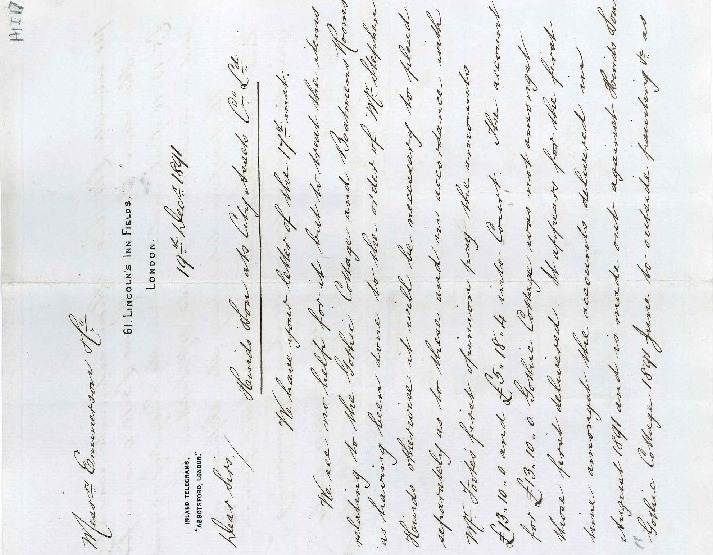 61, LINCOLN'S INN FIELDS,
LONDON.
19th Decr. 1891
Messrs Emmerson & Co
INLAND TELEGRAMS.
"ABBOTSFORD, LONDON."
Dear Sirs/
Hairds Son ats City Co Ld
We have your letter of the 17th inst.
We see no help for it but to treat the items
relating to the Gothic Cottage and Rooms
as having been done to the order of Mr Stephen
otherwise it will be necessary to plead
separately as to these and in accordance with
Mr first opinion pay the amounts
£13.10.0 and £5.18.4 into Court. The account
for £13.10.0 Gothic Cottage was not amongst
those first delivered. It appears for the first
time amongst the accounts delivered in
August 1891 and is made out against Son
Gothic Cottage 1891 June to outside painting &c as